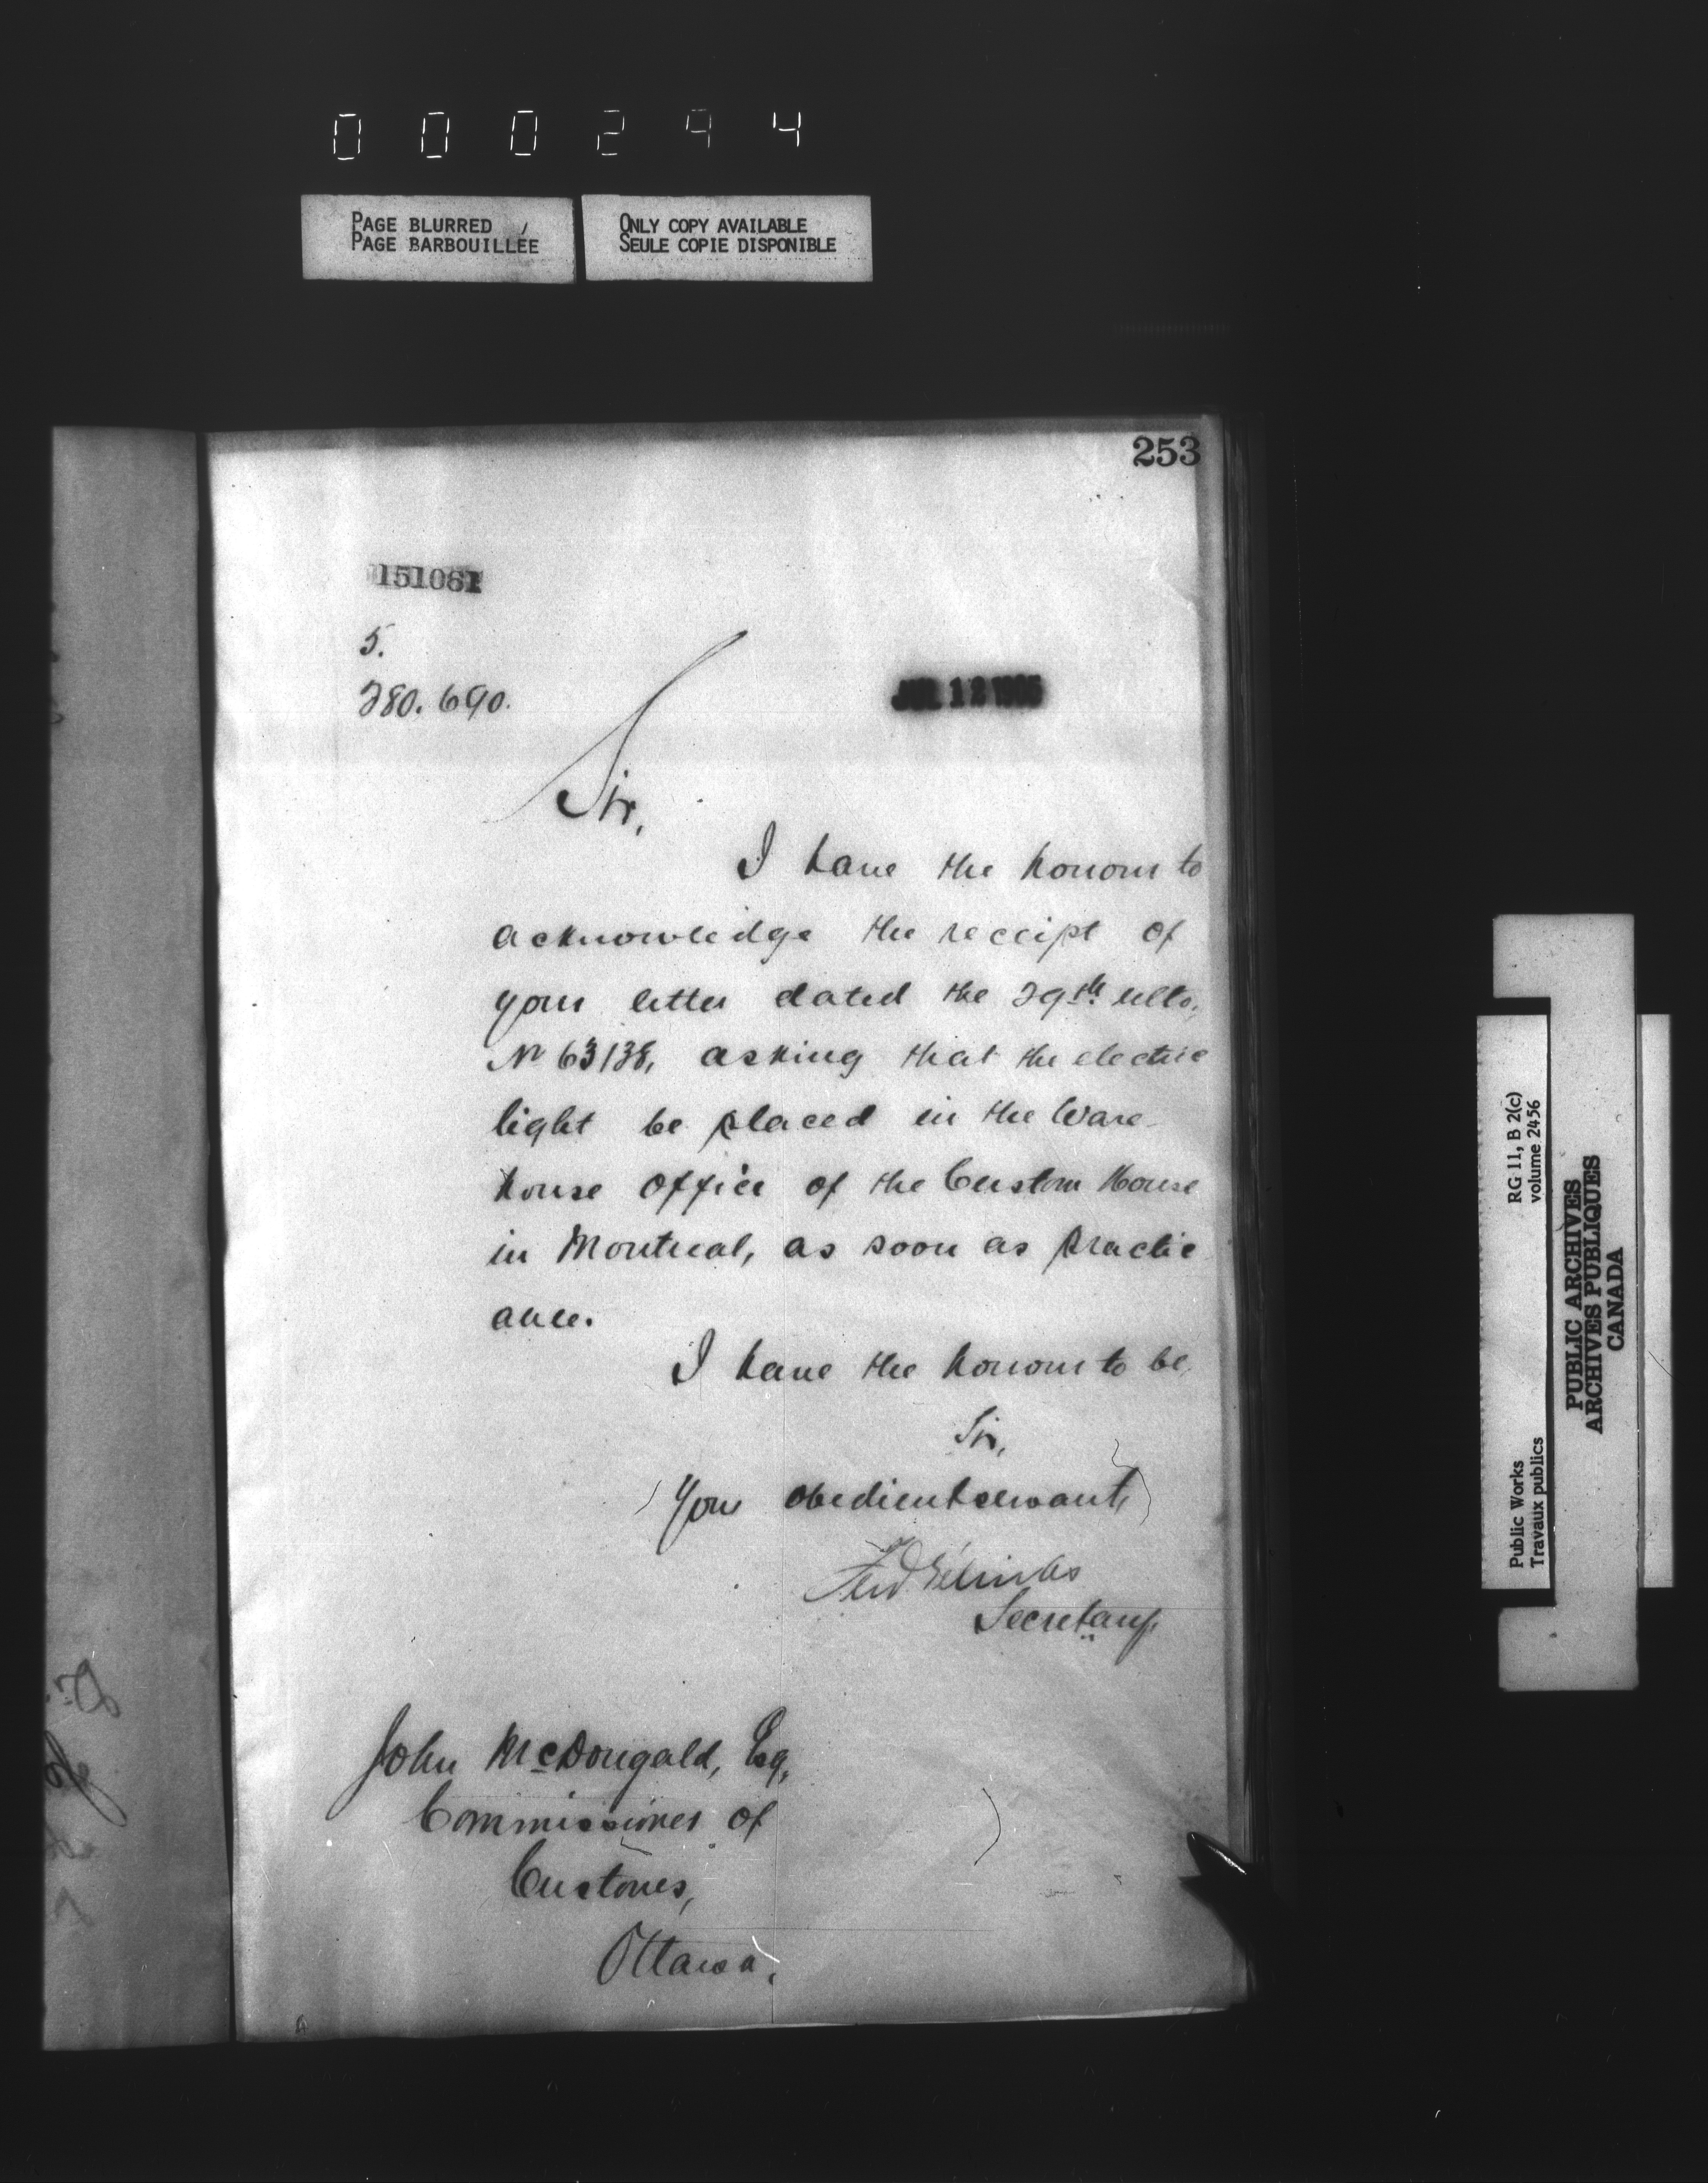 000294
PAGE BLURRED
PAGE BARBOUILLÉE
ONLY COPY AVAILABLE
SEULE COPIE DISPONIBLE
253
151061
5.
280.690.
12
Sir,
I have the honour to
acknowledge the receipt of
your letter dated the 29th ulto,
No 63138, asking that the electric
light be placed in the Ware-
house Office of the Custom House
in Montreal, as soon as practic
able.
I have the honour to be,
Sir,
Your obedient servant,
Fred Gélinas
Secretary.
John McDougald, Esq,
Commissioner of
Customs,
Ottawa.
RG 11, B 2(c)
volume 2456
Public Works
Travaux publics
PUBLIC ARCHIVES
ARCHIVES PUBLIQUES
CANADA